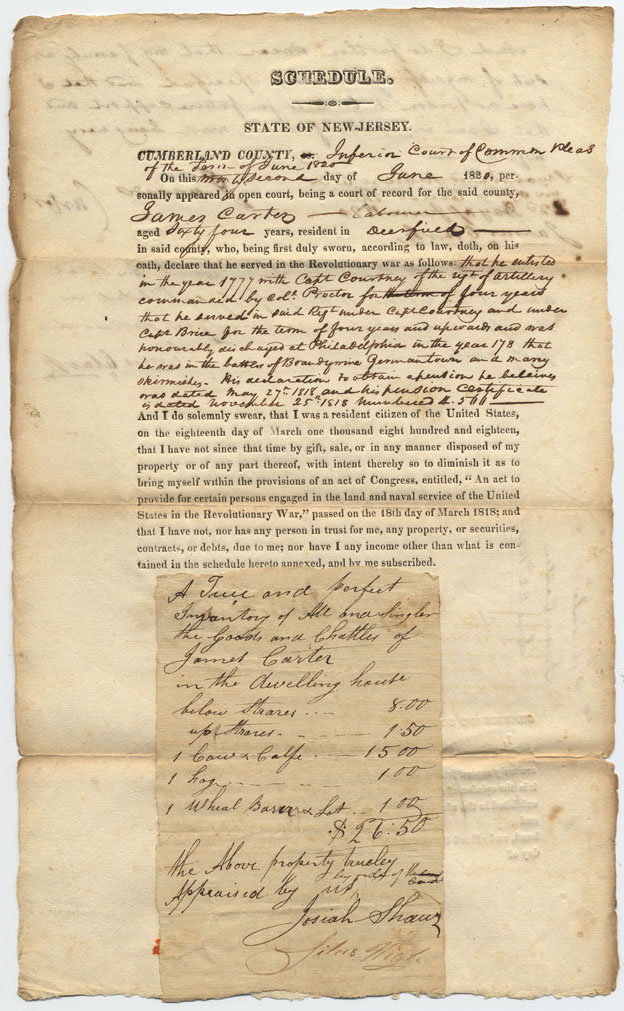 SCHEDULE.
STATE OF NEW-JERSEY.
CUMBERLAND COUNTY, ss. Inferior Court of Common Pleas
of the Term of June 1820
On this second day of June 1820, per-
sonally appeared in open court, being a court of record for the said county,
James Carter — Labourer
aged Sixty four years, resident in Deerfield
in said county, who, being first duly sworn, according to law, doth, on his
oath, declare that he served in the Revolutionary war as follows: that he enlisted
in the year 1777 with Capt Courtney of the regt of artillery
commanded by Col. Proctor for the term of four years
that he served in said Regt under Capt Courtney and under
Capt Brice for the term of four years and upwards and was
honourably discharged at Philadelphia in the year 178 that
he was in the battles of Brandywine Germantown and many
skirmishes. His declaration to obtain a pension he believes
was dated May 27th 1818 and his pension Certificate
is dated November 25th 1818 numbered
And I do solemnly swear, that I was a resident citizen of the United States,
on the eighteenth day of March one thousand eight hundred and eighteen,
that I have not since that time by gift, sale, or in any manner disposed of my
property or of any part thereof, with intent thereby so to diminish it as to
bring myself within the provisions of an act of Congress, entitled, "An act to
provide for certain persons engaged in the land and naval service of the United
States in the Revolutionary War," passed on the 18th day of March 1818; and
that I have not, nor has any person in trust for me, any property, or securities,
contracts, or debts, due to me; nor have I any income other than what is con-
tained in the schedule hereto annexed, and by me subscribed.
A True and perfect
Inventory of All and Singler
the Goods and Chattles of
James Carter
in the dwelling house
below Strares 8.00
up Strares 1.50
1 Cow & Calfe 15 00
1 hog 1 00
1 Wheal Barrw & Lot 1 00
$26.50
the Above property trueley
Appraised by us, by order of the Court
Josiah Shaw
Silas